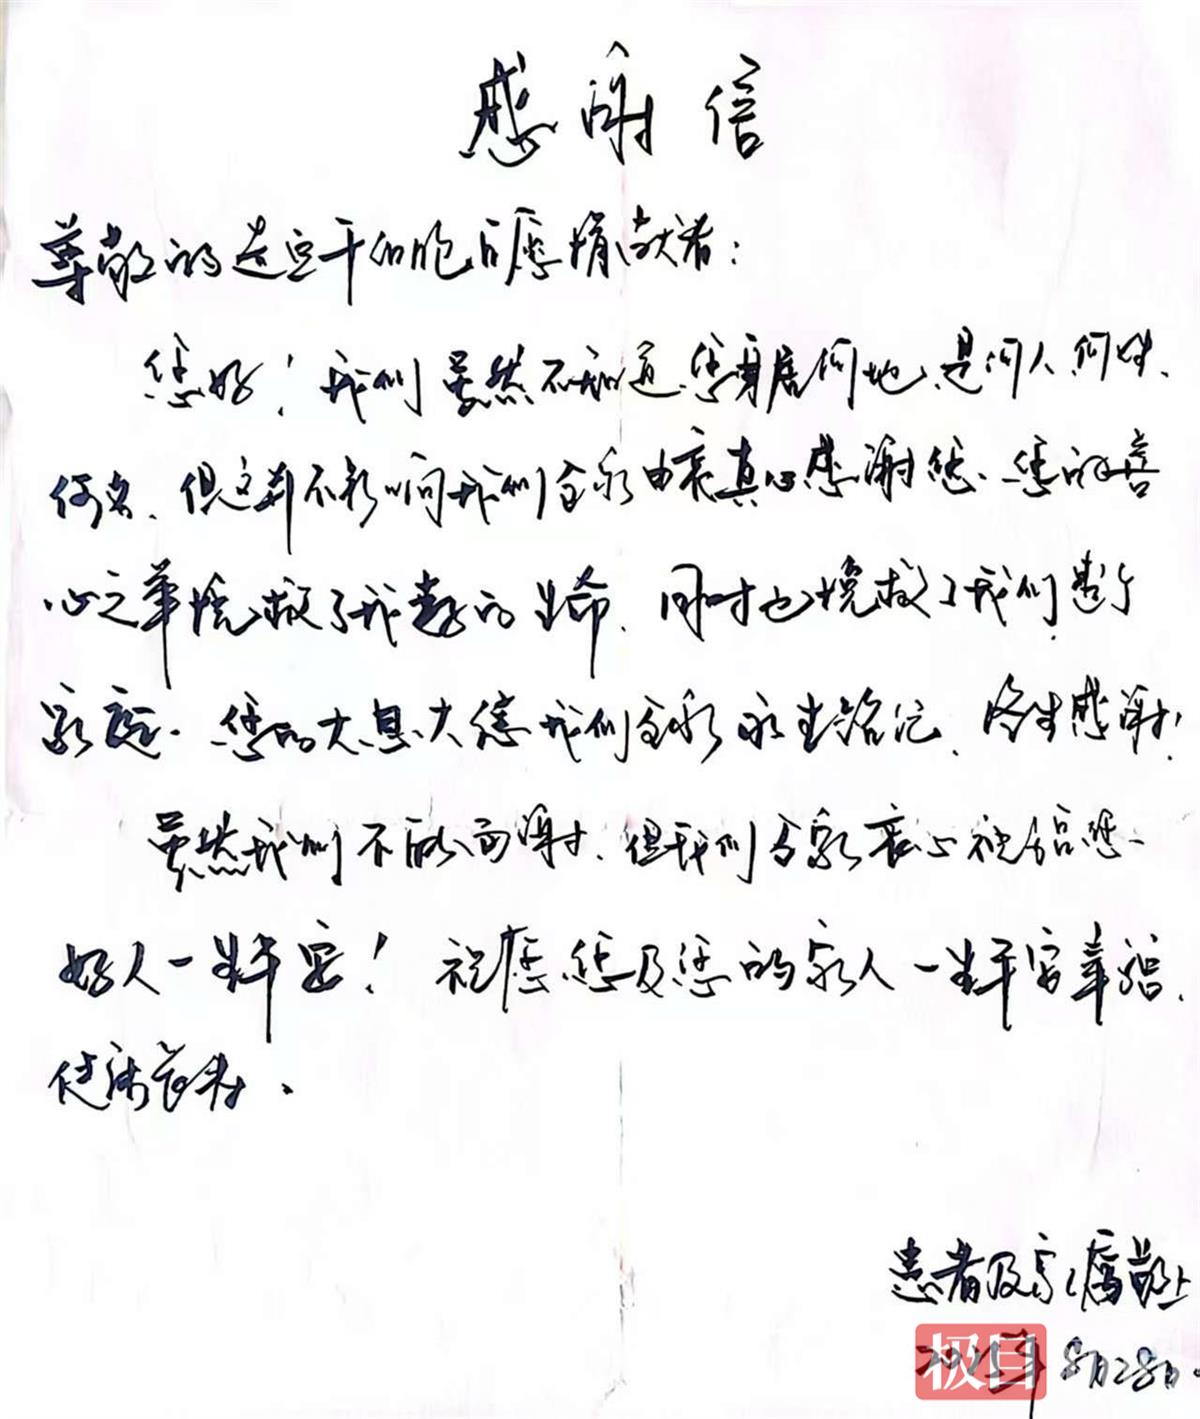 感谢信
尊敬的造血干细胞 捐献者：
您好！我们虽然不知道您身居何地、是何人何姓、
何名、但这并不影响我们全家由衷真心感谢您、您的善
心之举挽救了我 的生命、同时也挽救了我们整个
家庭。您的大恩大德我们全家永生铭记、终生感谢！
虽然我们不能面谢、但我们全家衷心祝福您、
好人一生平安！祝愿您及您的家人一生平安幸福、
健康 。
患者及家属敬上
极目
2025年8月28日.